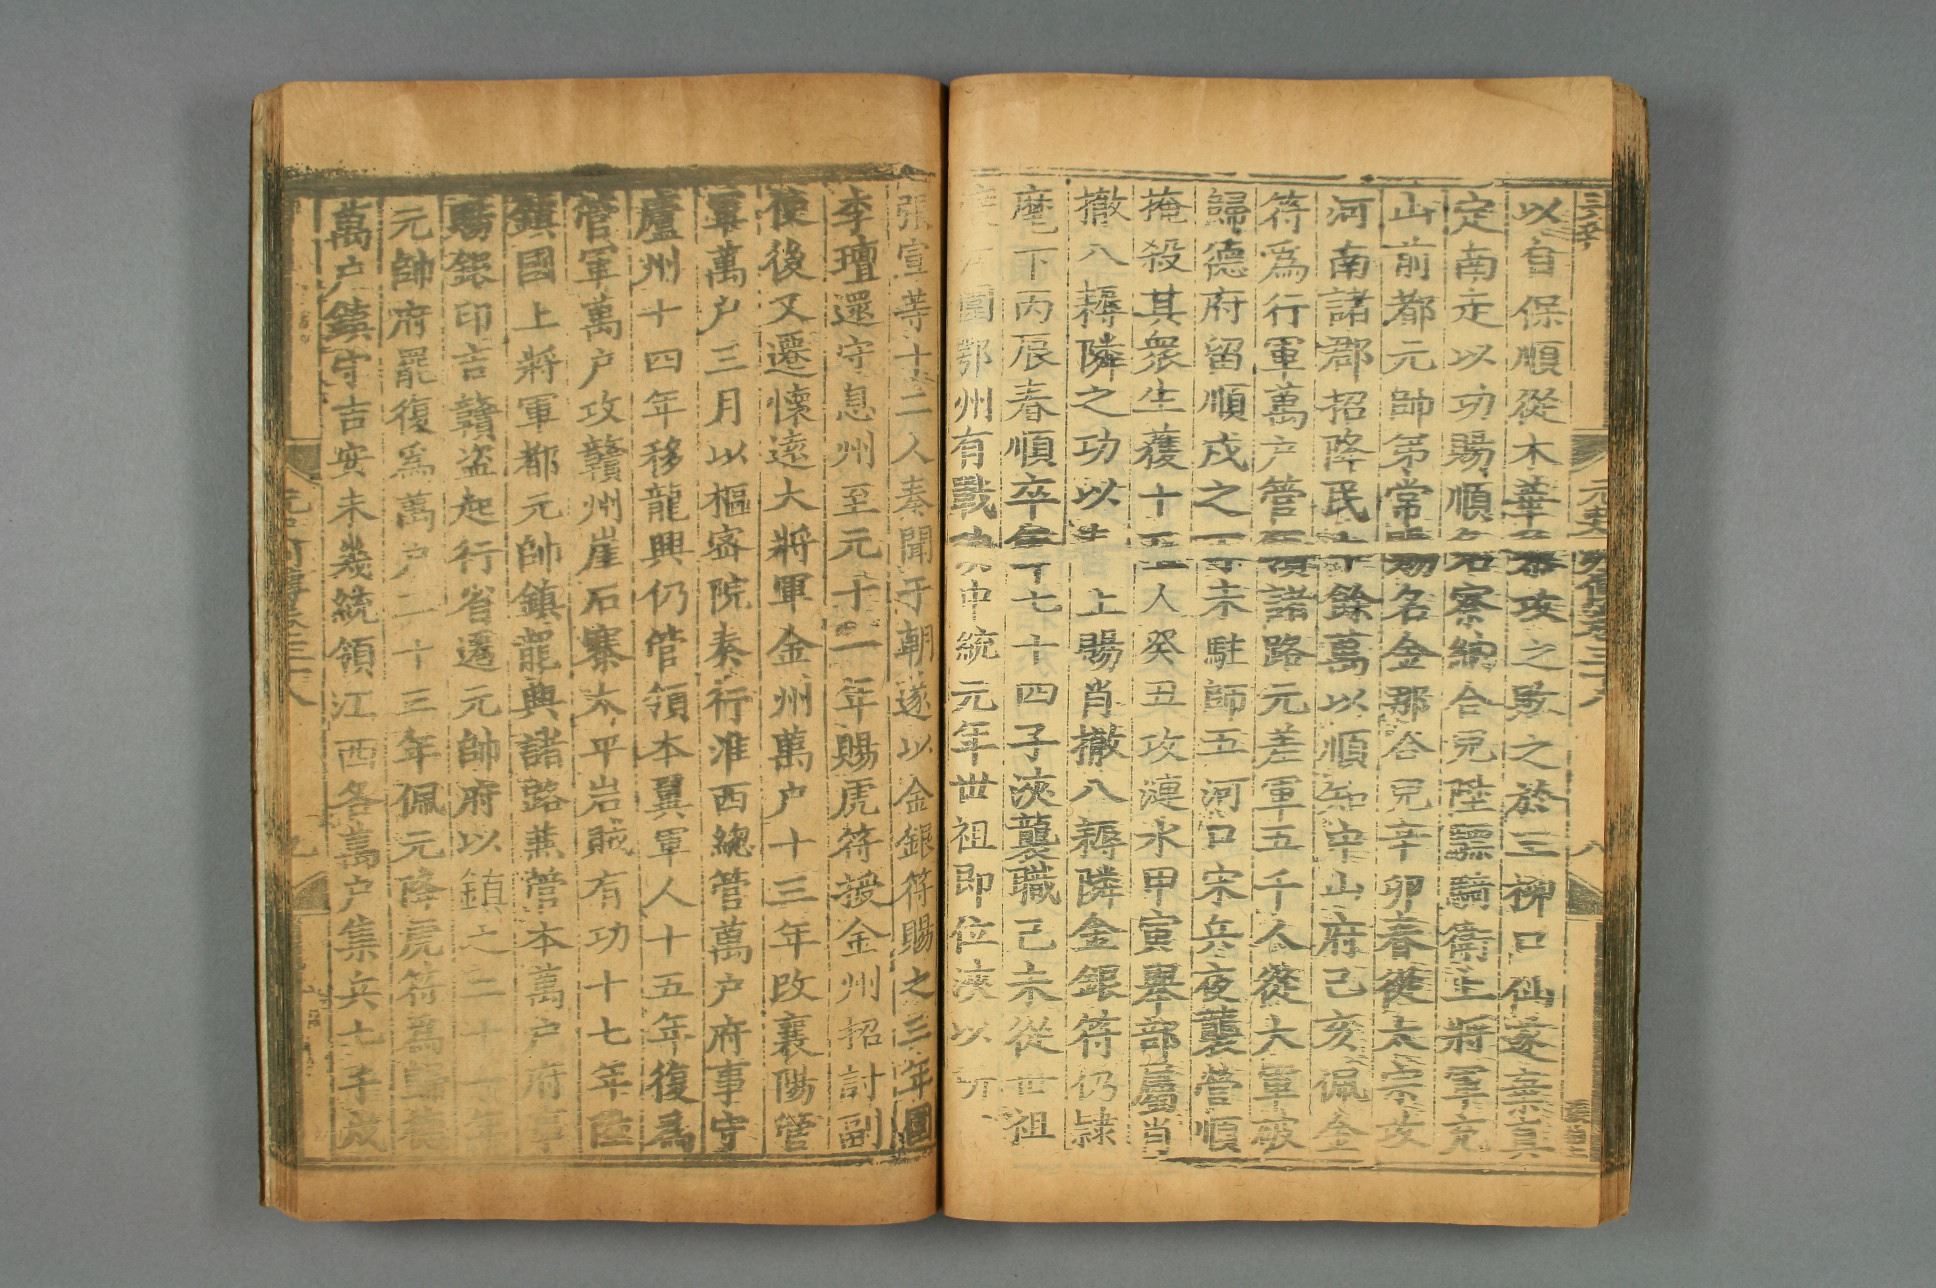 元史 列傳卷三十八 八
以自保順從木華黎攻之敗之於王柳口仙遂棄真
定南走以功賜順名察納合兒陞驃騎衛上將軍充
山前都元帥弟常賜名金那合兒辛卯春從太宗攻
河南諸郡招降民十餘萬以順知中山府己亥佩金
符爲行軍萬户管領諸路元差軍五千人從大軍破
歸德府留順戍之丁未駐師五河口宋兵夜襲營順
掩殺其衆生獲十五人癸丑攻漣水甲寅舉部屬肖
撤八耨隣之功以 上賜肖撤八耨隣金銀符仍隷
麾下丙辰春順卒年七十四子浹襲職己未從世祖
圍鄂州有戰功中統元年世祖即位浹以所
張宣等十二人奏聞于朝遂以金銀符賜之三年圍
李璮還守息州至元十一年賜虎符授金州招討副
使後又遷懷遠大將軍金州萬户十三年改襄陽管
軍萬户三月以樞密院奏行淮西總管萬户府事守
廬州十四年移龍興仍管領本翼軍人十五年復爲
管軍萬户攻贛州崖石寨太平岩賊有功十七年陞
鎮國上將軍都元帥鎮龍興諸路兼管本萬户府事
賜銀印吉贛盗起行省遷元帥府以鎮之二十年
元帥府罷復爲萬户二十三年佩元降虎符爲歸德
萬户鎮守吉安未幾統領江西各萬户集兵七千戍
元史列傳卷三十八 九